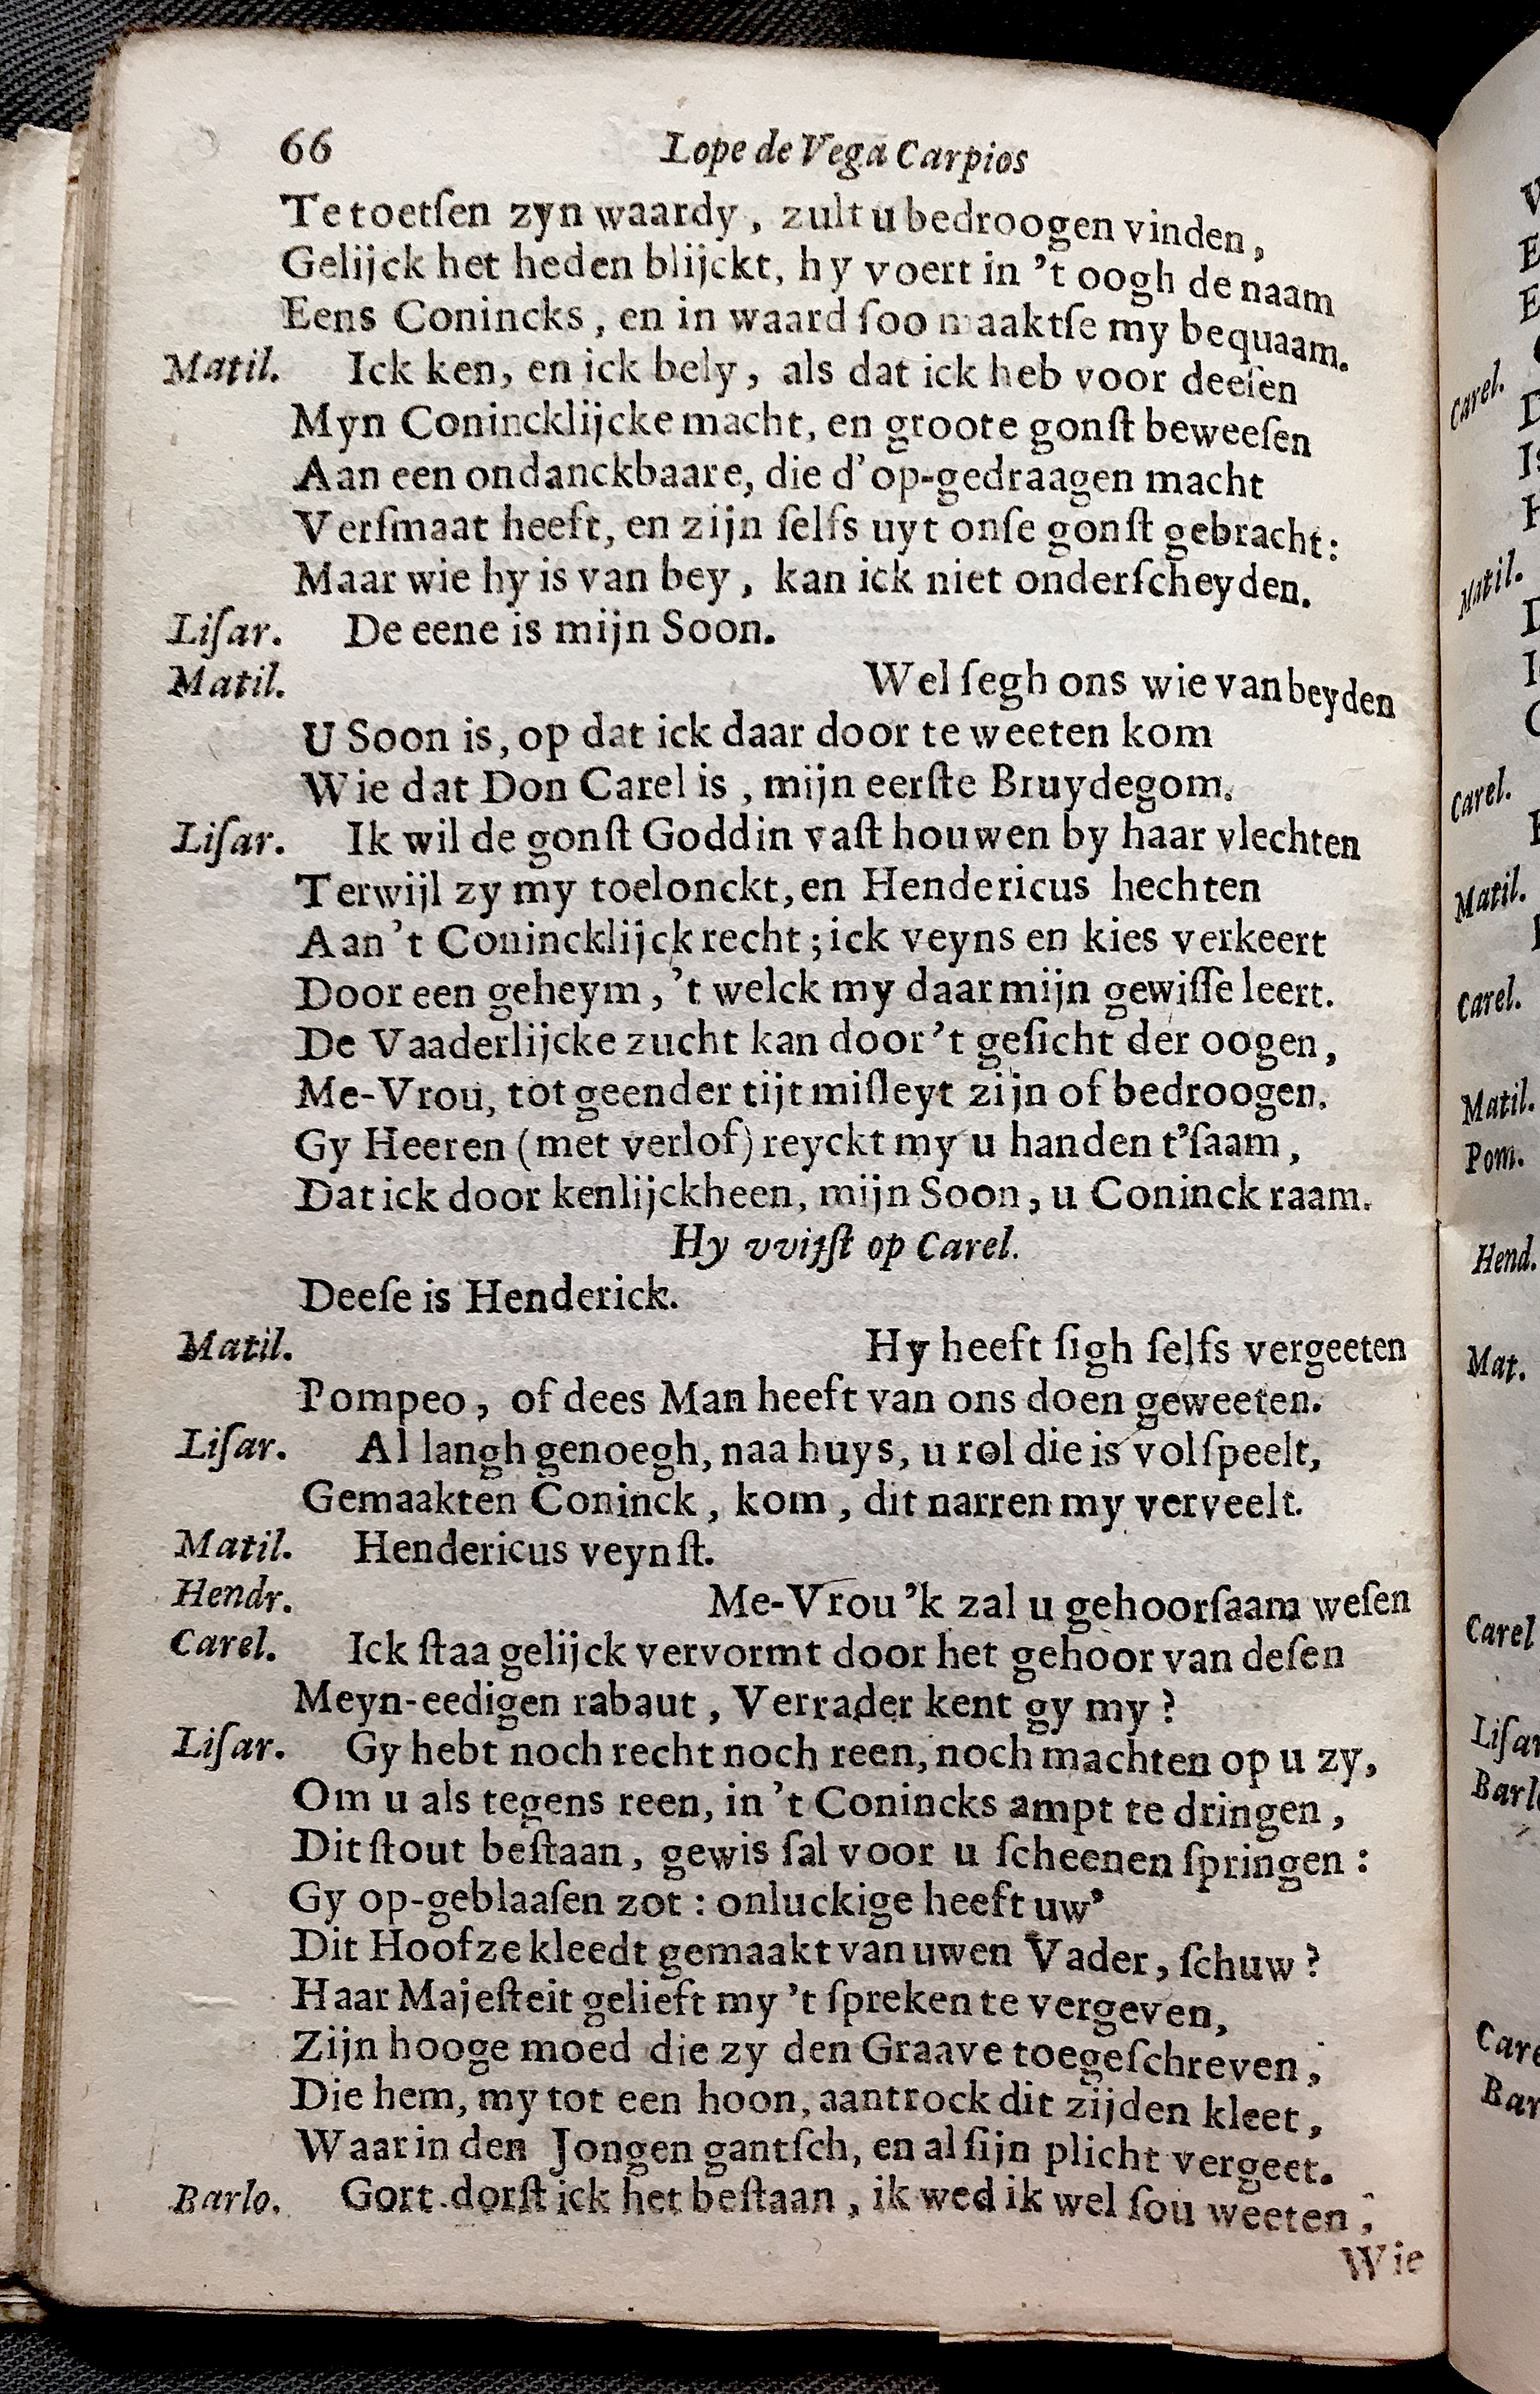 66 Lope de Vega Carpios
Te toetſen zyn waardy, zult u bedroogen vinden,
Gelijck het heden blijckt, hy voert in 't oogh de naam
Eens Conincks, en in waard ſoo maaktſe my bequaam.
Matil. Ick ken, en ick bely, als dat ick heb voor deeſen
Myn Conincklijcke macht, en groote gonſt beweeſen
Aan een ondanckbaare, die d'op-gedraagen macht
Verſmaat heeft, en zijn ſelfs uyt onſe gonſt gebracht:
Maar wie hy is van bey, kan ick niet onderſcheyden.
Liſar. De eene is mijn Soon.
Matil. Wel ſegh ons wie van beyden
U Soon is, op dat ick daar door te weeten kom
Wie dat Don Carel is, mijn eerſte Bruydegom.
Liſar. Ik wil de gonſt Goddin vaſt houwen by haar vlechten
Terwijl zy my toelonckt, en Hendericus hechten
Aan 't Conincklijck recht; ick veyns en kies verkeert
Door een geheym, 't welck my daar mijn gewiſſe leert.
De Vaaderlijcke zucht kan door 't geſicht der oogen,
Me-Vrou, tot geender tijt miſleyt zijn of bedroogen.
Gy Heeren (met verlof) reyckt my u handen t'ſaam,
Dat ick door kenlijckheen, mijn Soon, u Coninck raam.
Hy vvijſt op Carel.
Deeſe is Henderick.
Matil. Hy heeft ſigh ſelfs vergeeten
Pompeo, of dees Man heeft van ons doen geweeten.
Liſar. Al langh genoegh, naa huys, u rol die is volſpeelt,
Gemaakten Coninck, kom, dit narren my verveelt.
Matil. Hendericus veynſt.
Hendr. Me-Vrou 'k zal u gehoorſaam weſen
Carel. Ick ſtaa gelijck vervormt door het gehoor van deſen
Meyn-eedigen rabaut, Verrader kent gy my?
Liſar. Gy hebt noch recht noch reen, noch machten op u zy,
Om u als tegens reen, in 't Conincks ampt te dringen,
Dit ſtout beſtaan, gewis ſal voor u ſcheenen ſpringen:
Gy op-geblaaſen zot: onluckige heeft uw'
Dit Hoofze kleedt gemaakt van uwen Vader, ſchuw?
Haar Majeſteit gelieft my 't ſpreken te vergeven,
Zijn hooge moed die zy den Graave toegeſchreven,
Die hem, my tot een hoon, aantrock dit zijden kleet,
Waar in den Jongen gantſch, en al ſijn plicht vergeet.
Barlo. Gort dorſt ick het beſtaan, ik wed ik wel ſou weeten,
Wie
Carel.
Matil.
Carel.
Matil.
Carel.
Matil.
Pom.
Hend.
Mat.
Carel